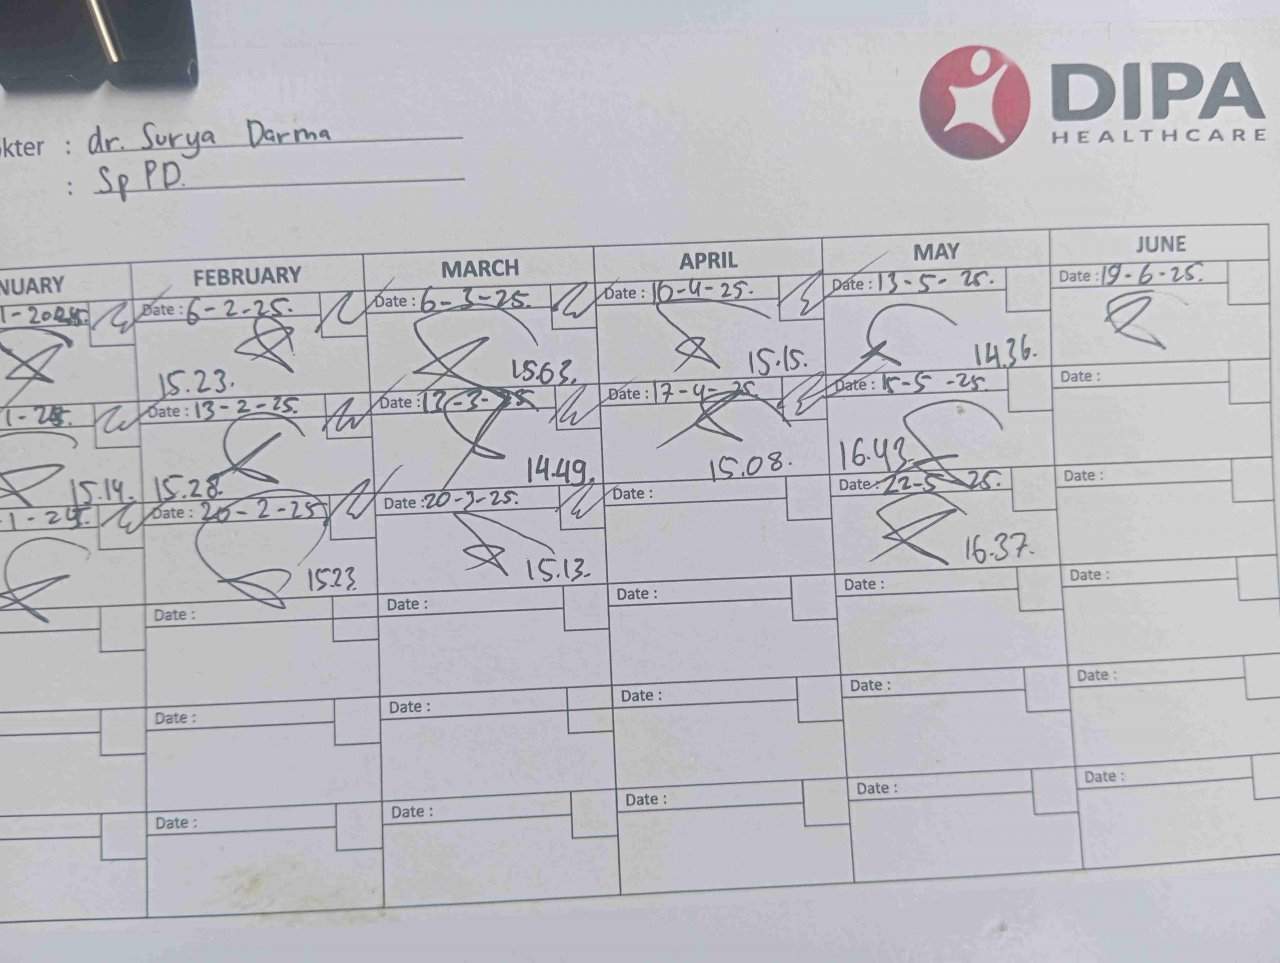 DIPA
HEALTHCARE
kter : dr. Surya Darma
: Sp PD.
NUARY FEBRUARY MARCH APRIL MAY JUNE
Date : 6-2-25. Date : 6-3-25. Date : 10-4-25. Date : 13-5-25. Date : 19-6-25.
15.23. 15.03. 15.15. 14.36.
1-25. Date : 13-2-25. Date : 13-3-25 Date : 17-4-25 Date : 15-5-25. Date :
15.14. 15.28. 14.49. 15.08. 16.42
-1-25. Date : 20-2-25 Date : 20-3-25. Date : Date : 22-5-25. Date :
15.23. 15.13. 16.37.
Date : Date : Date : Date : Date :
Date : Date : Date : Date : Date :
Date : Date : Date : Date : Date :